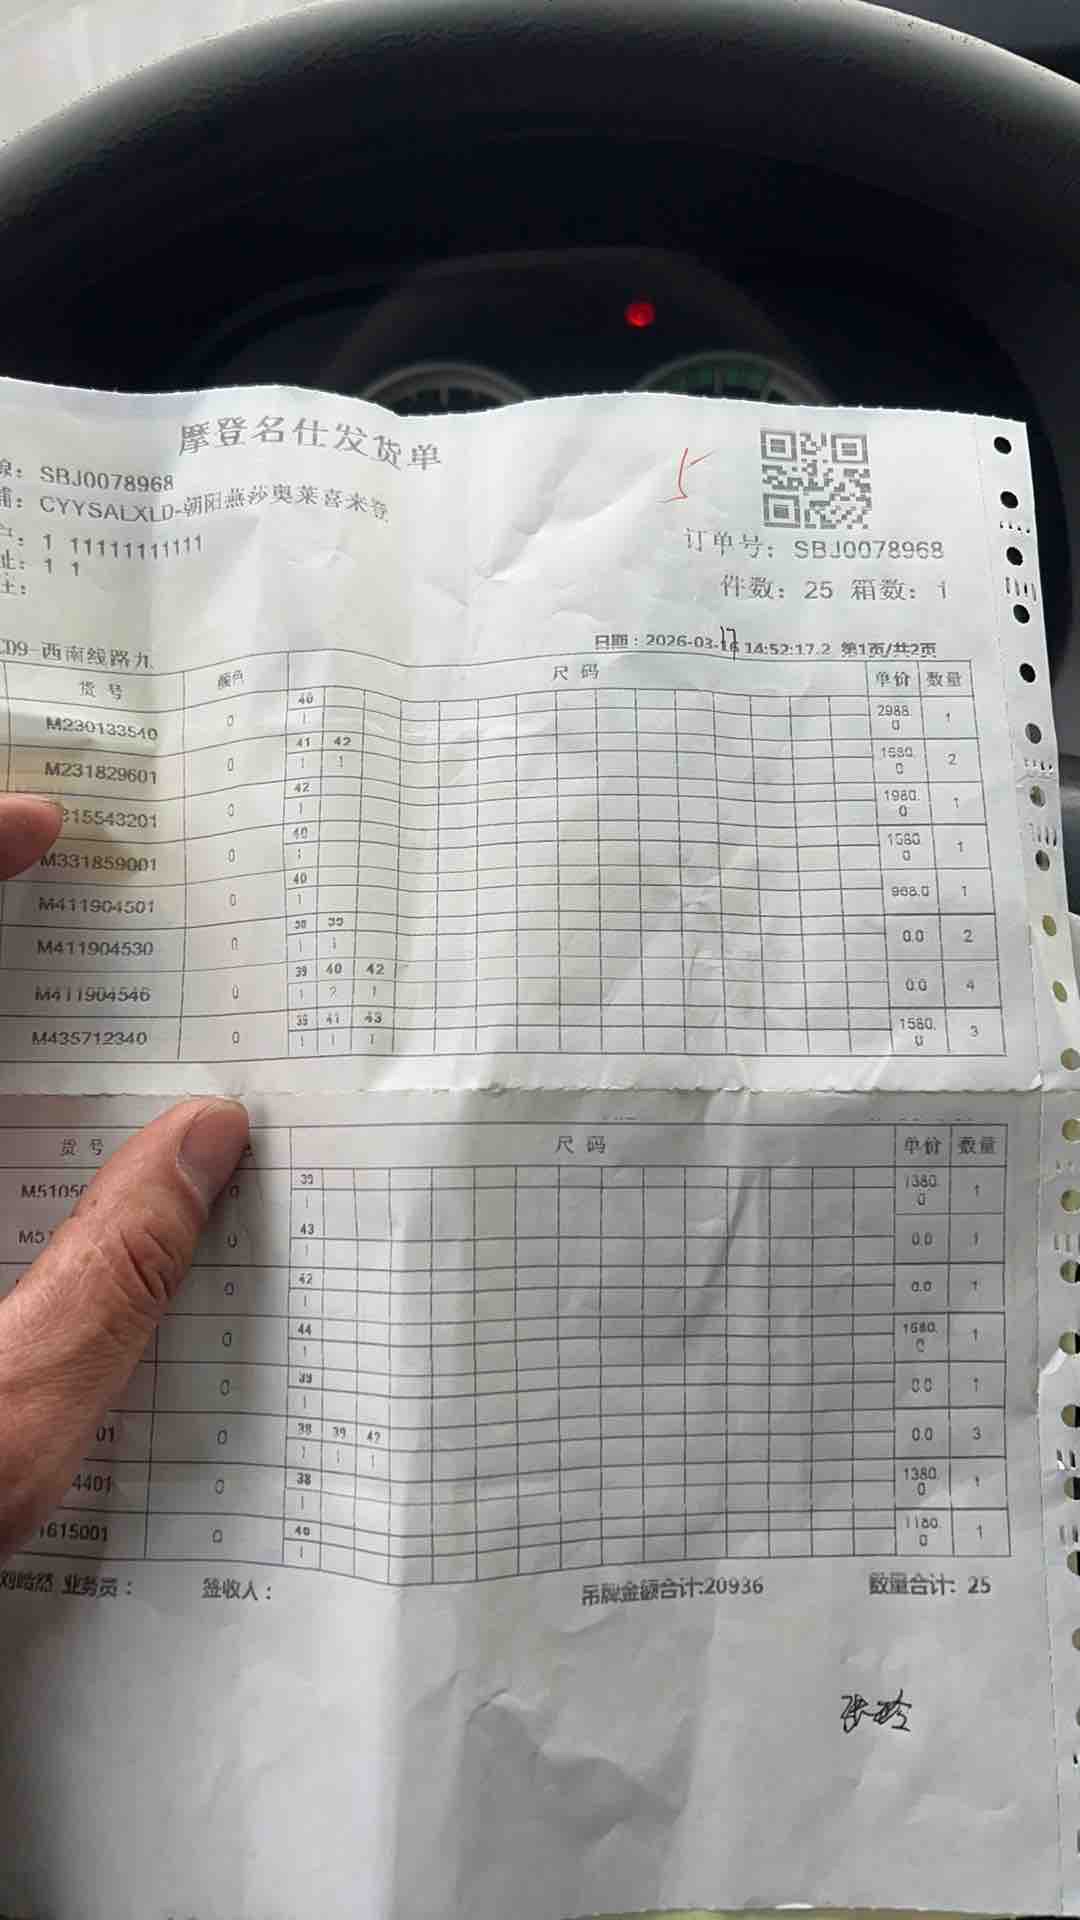 摩登名仕发货单
5
SBJ0078968
CYYSALXLD-朝阳燕莎奥莱喜来登
1 11111111111
1 1
订单号：SBJ0078968
件数：25 箱数：1
西南线路九
日期：2026-03-16 14:52:17.2 第1页/共2页
17
货号 颜色 尺码 单价 数量
M230133540 0 40 1 2988.0 1
M231829601 0 41 42 1 1 1580.0 2
315543201 0 42 1 1980.0 1
M331859001 0 40 1 1580.0 1
M411904501 0 40 1 968.0 1
M411904530 0 38 39 1 1 0.0 2
M411904546 0 39 40 42 1 2 1 0.0 4
M435712340 0 39 41 43 1 1 1 1580.0 3
货号 尺码 单价 数量
M5105 0 39 1 1380.0 1
M51 0 43 1 0.0 1
0 42 1 0.0 1
0 44 1 1 
0 39 1 0.0 1
01 0 38 39 42 1 1 1 0.0 3
4401 0 38 1 1380.0 1
1615001 0 40 1 1180.0 1
业务员： 签收人： 吊牌金额合计:20936 数量合计: 25
张玲